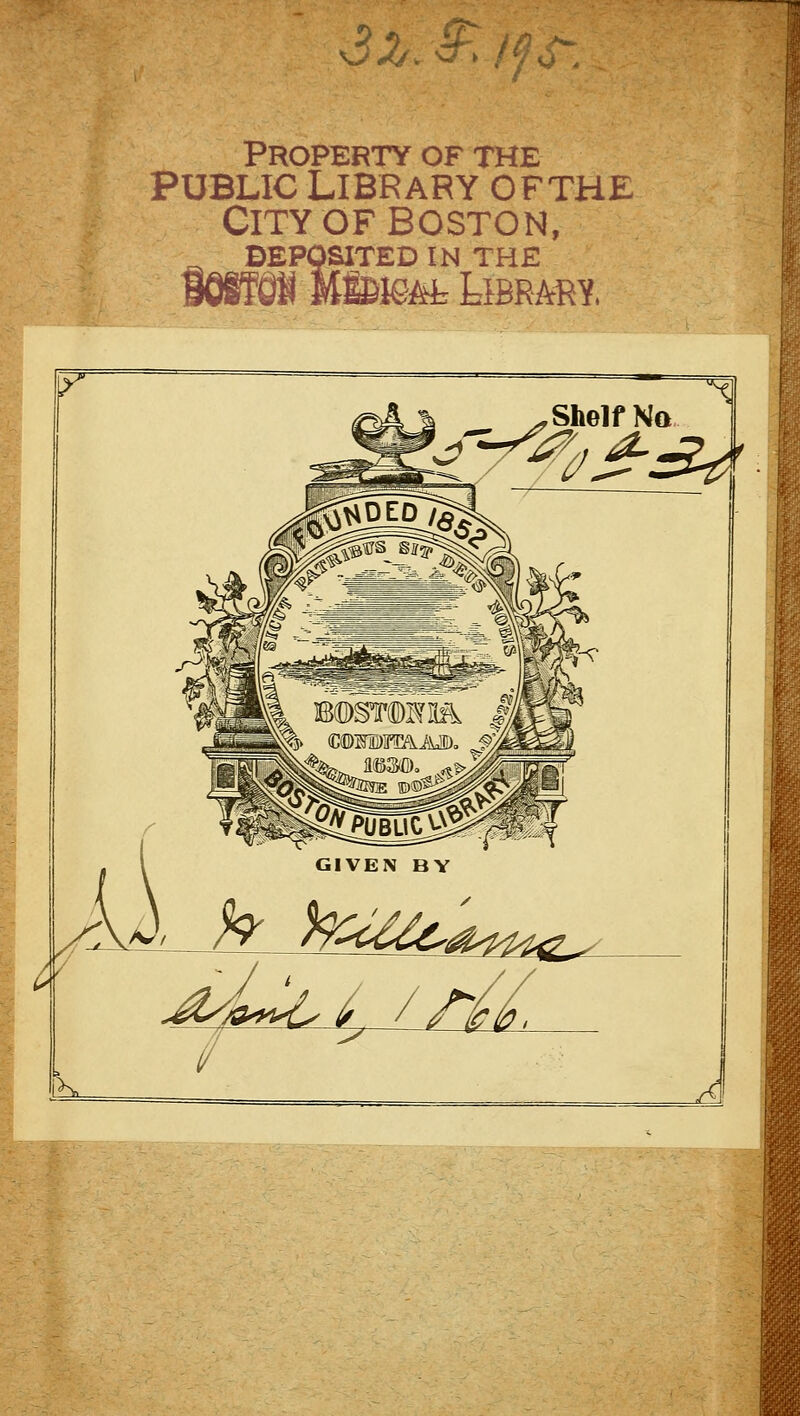 32. F. 195.
PROPERTY OF THE
PUBLIC LIBRARY OF THE
CITY OF BOSTON,
DEPOSITED IN THE
BOSTON MEDICAL LIBRARY.
Shelf No
FOUNDED 1852
SICUT PATRIBUS SIT DEUS NOBIS
BOSTONIA
CONDITA A.D.
1630.
CIVITATIS REGIMINE DONATA A.D. 1822.
BOSTON PUBLIC LIBRARY
GIVEN BY
W Williams
April 6, 1866.